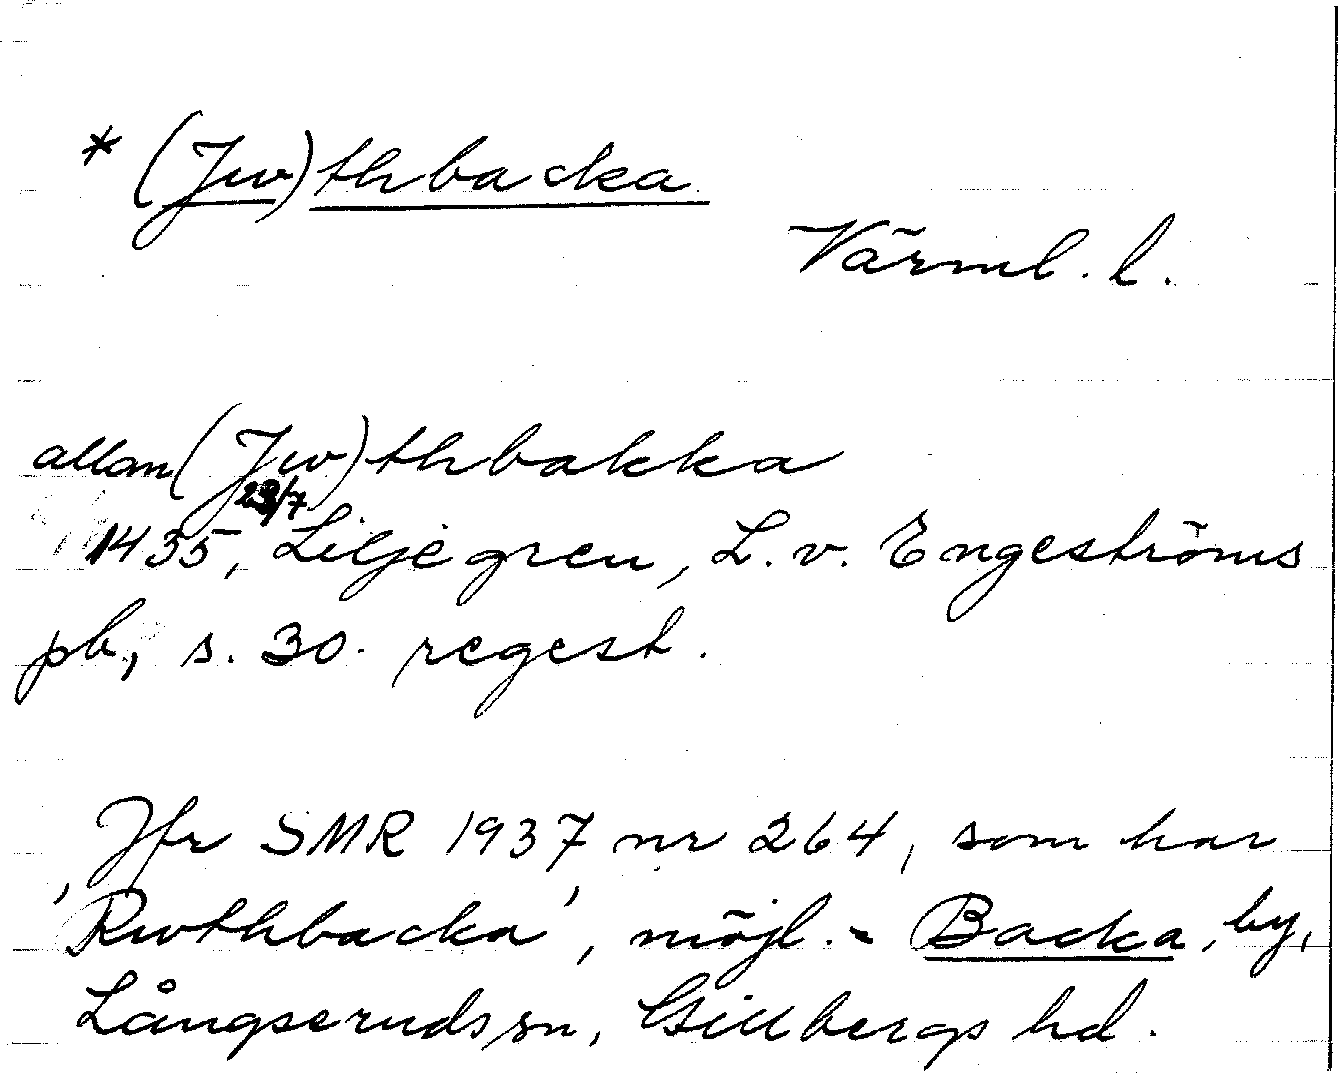 * (Jw)thbacka
Värml. l.
allan (Jw)thbakka
1435, 23/7 Liljegren, L. v. Engeströms
pb, s. 30. regest.
Jfr SMR 1937 nr 264, som har
'Rwthbacka', möjl. = Backa, by,
Långseruds sn, Gillbergs hd.